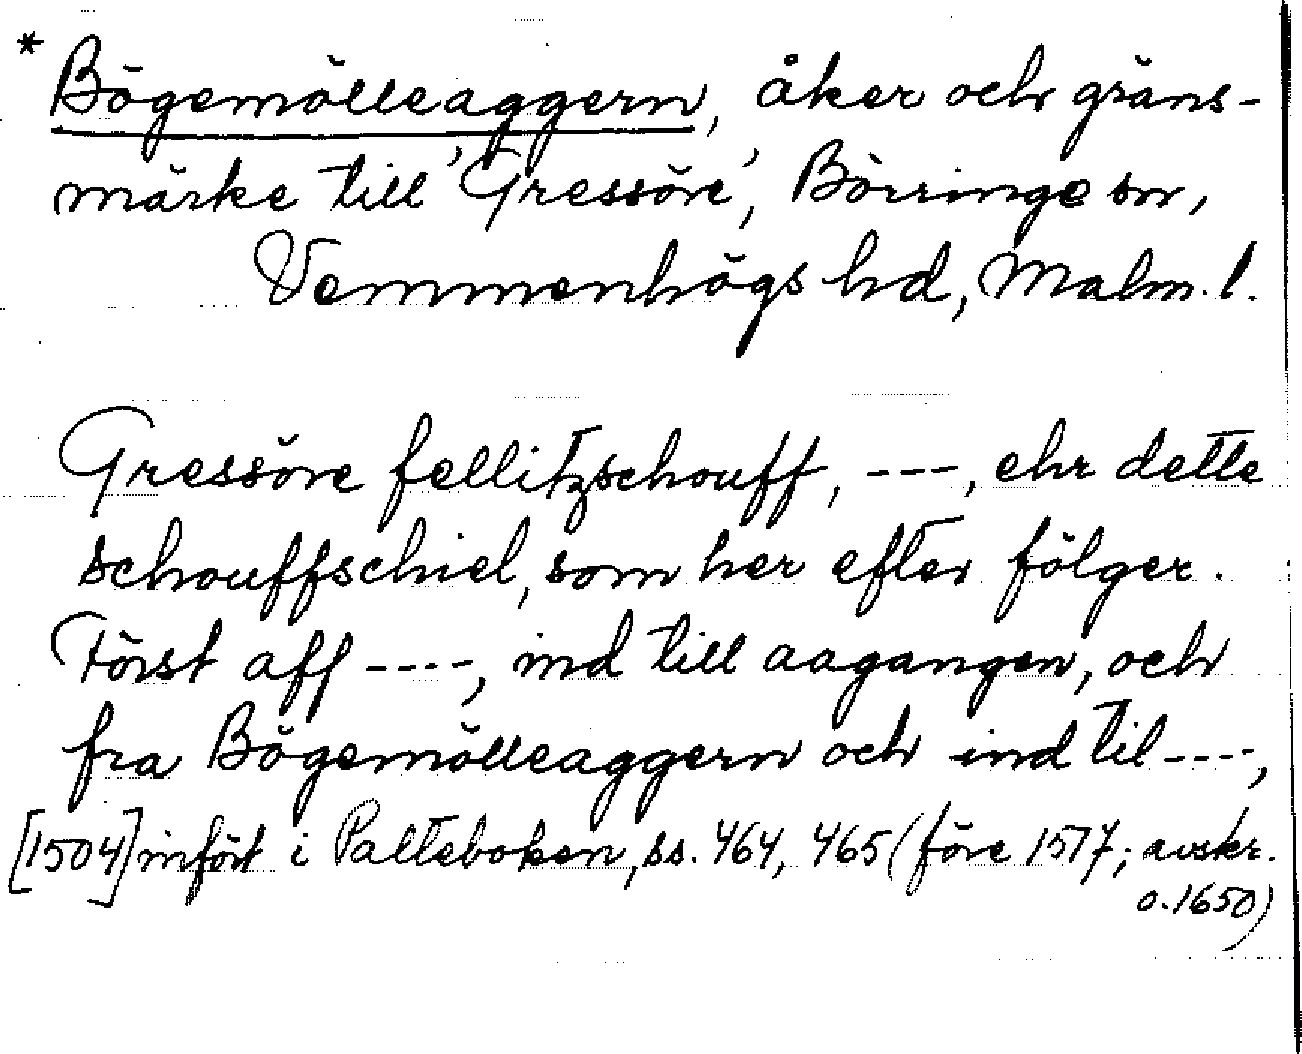 * Bögemölleaggern, åker och gräns-
märke till 'Gressöre', Börringe sn,
Vemmenhögs hd, Malm. l.
Gressöre fellitzschouff, ---, ehr dette
schouffschiel, som her efter fölger.
Först aff ----, ind till aagangen, och
fra Bögemölleaggern och ind til ----,
[1504] infört i Palteboken, ss. 464, 465 (före 1577; avskr.
o. 1650)